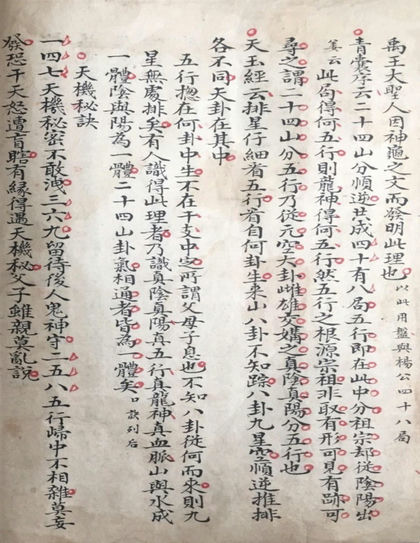 禹王大聖人因神龜之文而發明此理也 以此用盤與楊公四十八局
青囊序云二十四山分順逆共成四十有八局五行即在此中分祖宗却從陰陽出
又云此局得何五行則龍神得何五行然五行之根源宗祖非取有形可見有跡可
尋之謂二十四山分五行乃從元空大卦雌雄交媾之真陰真陽分五行也
天玉經云排星仔細看五行看自何卦生來山八卦不知踪八卦九星空順逆推排
各不同天卦在其中
五行揔在何卦中生不在干支中定所謂父母子息也不知八卦從何而來則九
星無處排矣有人識得此理者乃識真陰真陽真五行真龍神真血脈山與水成
一體陰與陽為一體二十四山卦氣相通者皆為一體矣 口訣列后
天機秘訣
一四七天機秘密不敢洩三六九留待後人鬼神守二五八五行歸中不相雜莫妄
發恐干天怒遭盲瞎有緣得遇天機秘父子雖親莫亂說